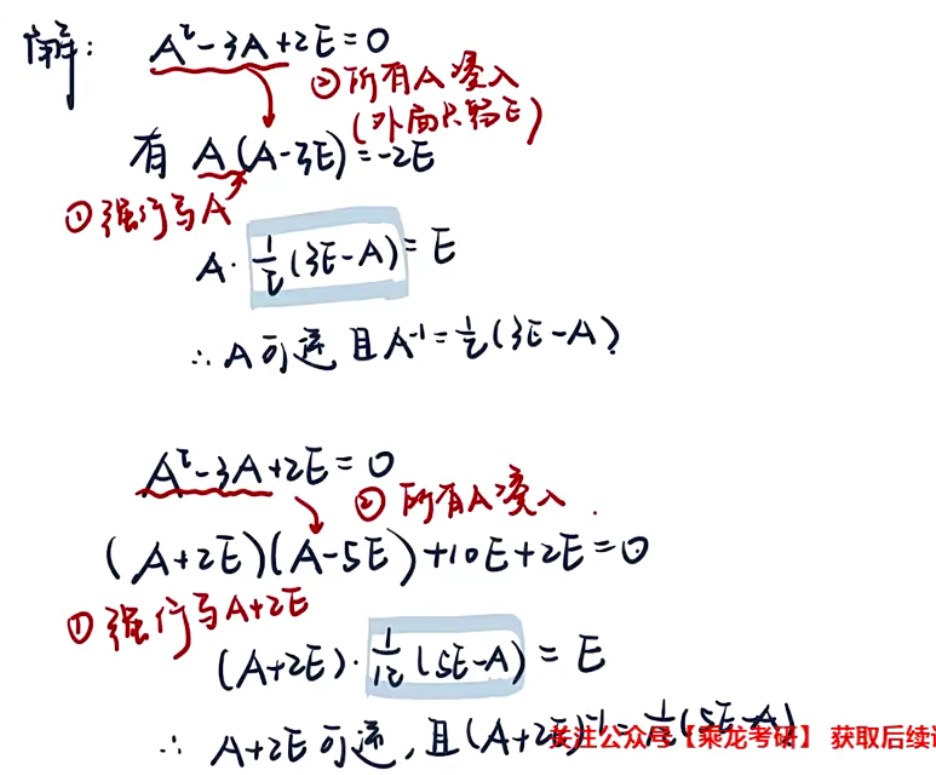 解: A²-3A+2E=0
②所有A凑入
(外面只剩E)
有 A(A-3E)=-2E
①强行写A
A·1/2(3E-A)=E
∴A可逆且A⁻¹=1/2(3E-A)
A²-3A+2E=0
②所有A凑入.
(A+2E)(A-5E)+10E+2E=0
①强行写A+2E
(A+2E)·1/12(5E-A)=E
∴A+2E可逆,且(A+2E)⁻¹=1/12(5E-A)
关注公众号【乘龙考研】 获取后续